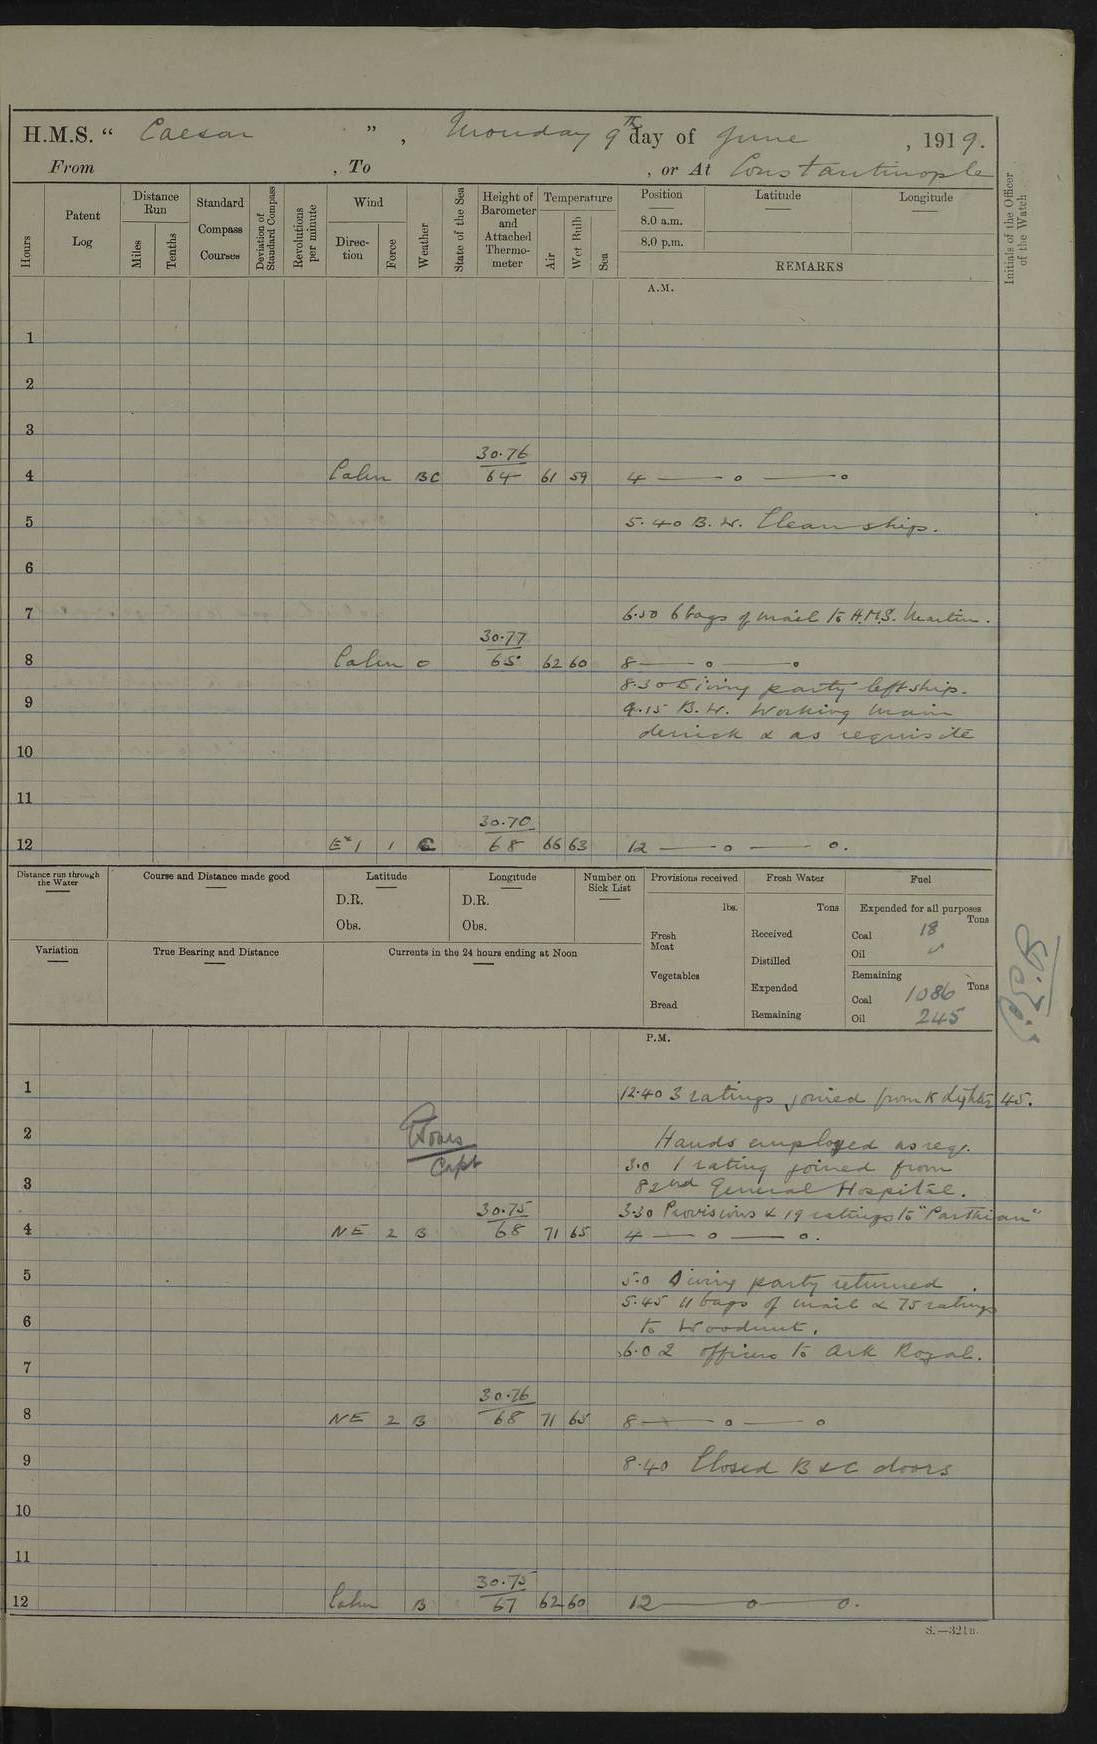 H.M.S. " Caesar ", Monday 9th day of June, 1919.
From , To , or At Constantinople
Hours
Patent Log
Distance Run
Miles
Tenths
Standard Compass Courses
Deviation of Standard Compass
Revolutions per minute
Wind
Direc-tion
Force
Weather
State of the Sea
Height of Barometer and Attached Thermo-meter
Temperature
Air
Wet Bulb
Sea
Position
8.0 a.m.
8.0 p.m.
Latitude
Longitude
REMARKS
Initials of the Officer of the Watch
A.M.
1
2
3
30.76
4 Calm BC 64 61 59 4 — o — o
5 5.40 B.W. Clean ship.
6
7 6.50 6 bags of mail to H.M.S. Martin.
30.77
8 Calm o 65 62 60 8 — o — o
8.30 Diving party left ship.
9 9.15 B.W. Working main
derrick & as requisite
10
11
30.70
12 1 68 66 63 12 — o — o.
Distance run through the Water
Course and Distance made good
Latitude
D.R.
Obs.
Longitude
D.R.
Obs.
Number on Sick List
Provisions received
lbs.
Fresh Meat
Vegetables
Bread
Fresh Water
Tons
Received
Distilled
Expended
Remaining
Fuel
Expended for all purposes
Tons
Coal 18
Oil
Remaining
Tons
Coal 1086
Oil 245
Variation
True Bearing and Distance
Currents in the 24 hours ending at Noon
P.M.
1 12.40 3 ratings joined from K Lighter 45.
2 Hands employed as req.
3.0 1 rating joined from
3 82nd General Hospital.
Capt
30.75 3.30 Provisions & 19 ratings to "Parthian"
4 NE 2 B 68 71 65 4 — o — o.
5 5.0 Diving party returned.
5.45 11 bags of mail & 75 ratings
6 to Woodnut.
6.0 2 officers to Ark Royal.
7
30.76
8 NE 2 B 68 71 65 8 — o — o
9 8.40 Closed B & C doors
10
11
30.75
12 Calm B 67 62 60 12 — o — o.
S.—321B.